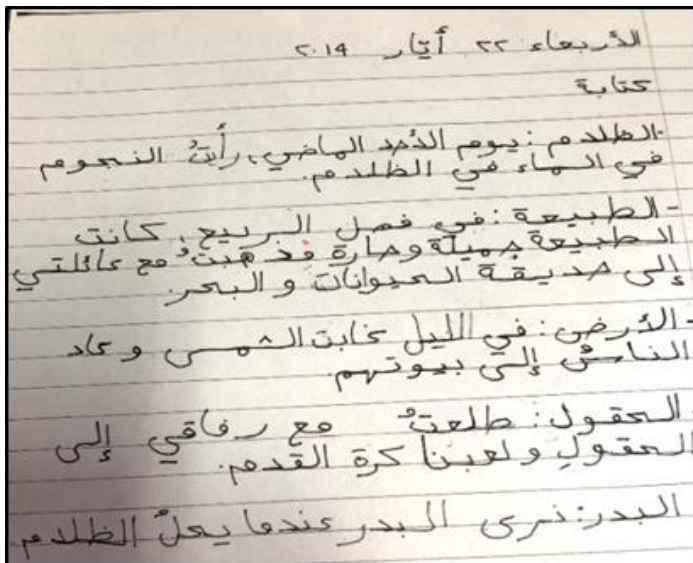 الأربعاء ٢٢ أيّار ٢٠١٤
كتابة
-الظلام: يوم الأحد الماضي، رأيتُ النجوم
في السماء في الظلام.
-الطبيعة: في فصل الربيع، كانت
الطبيعة جميلة وحارة فذهبتُ مع عائلتي
إلى حديقة الحيوانات و البحر.
-الأرض: في الليل غابت الشمس و عاد
الناس إلى بيوتهم.
الحقول: طلعتُ مع رفاقي إلى
الحقولِ و لعبنا كرة القدم.
البدر: نرى البدر عندما يحلّ الظلام